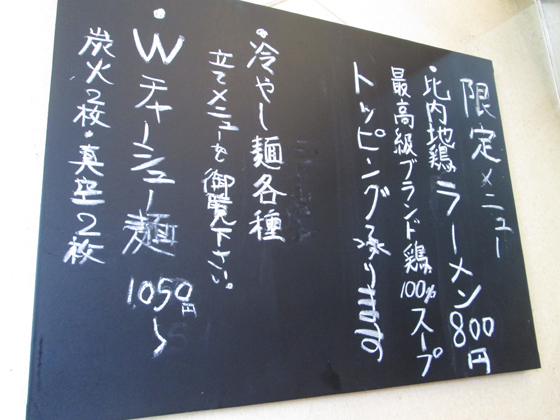 限定メニュー
・比内地鶏ラーメン800円
最高級ブランド鶏100%スープ
トッピング承ります
・冷やし麺各種
立てメニューを御覧下さい。
・Wチャーシュー麺 1050円〜
炭火2枚・真空2枚